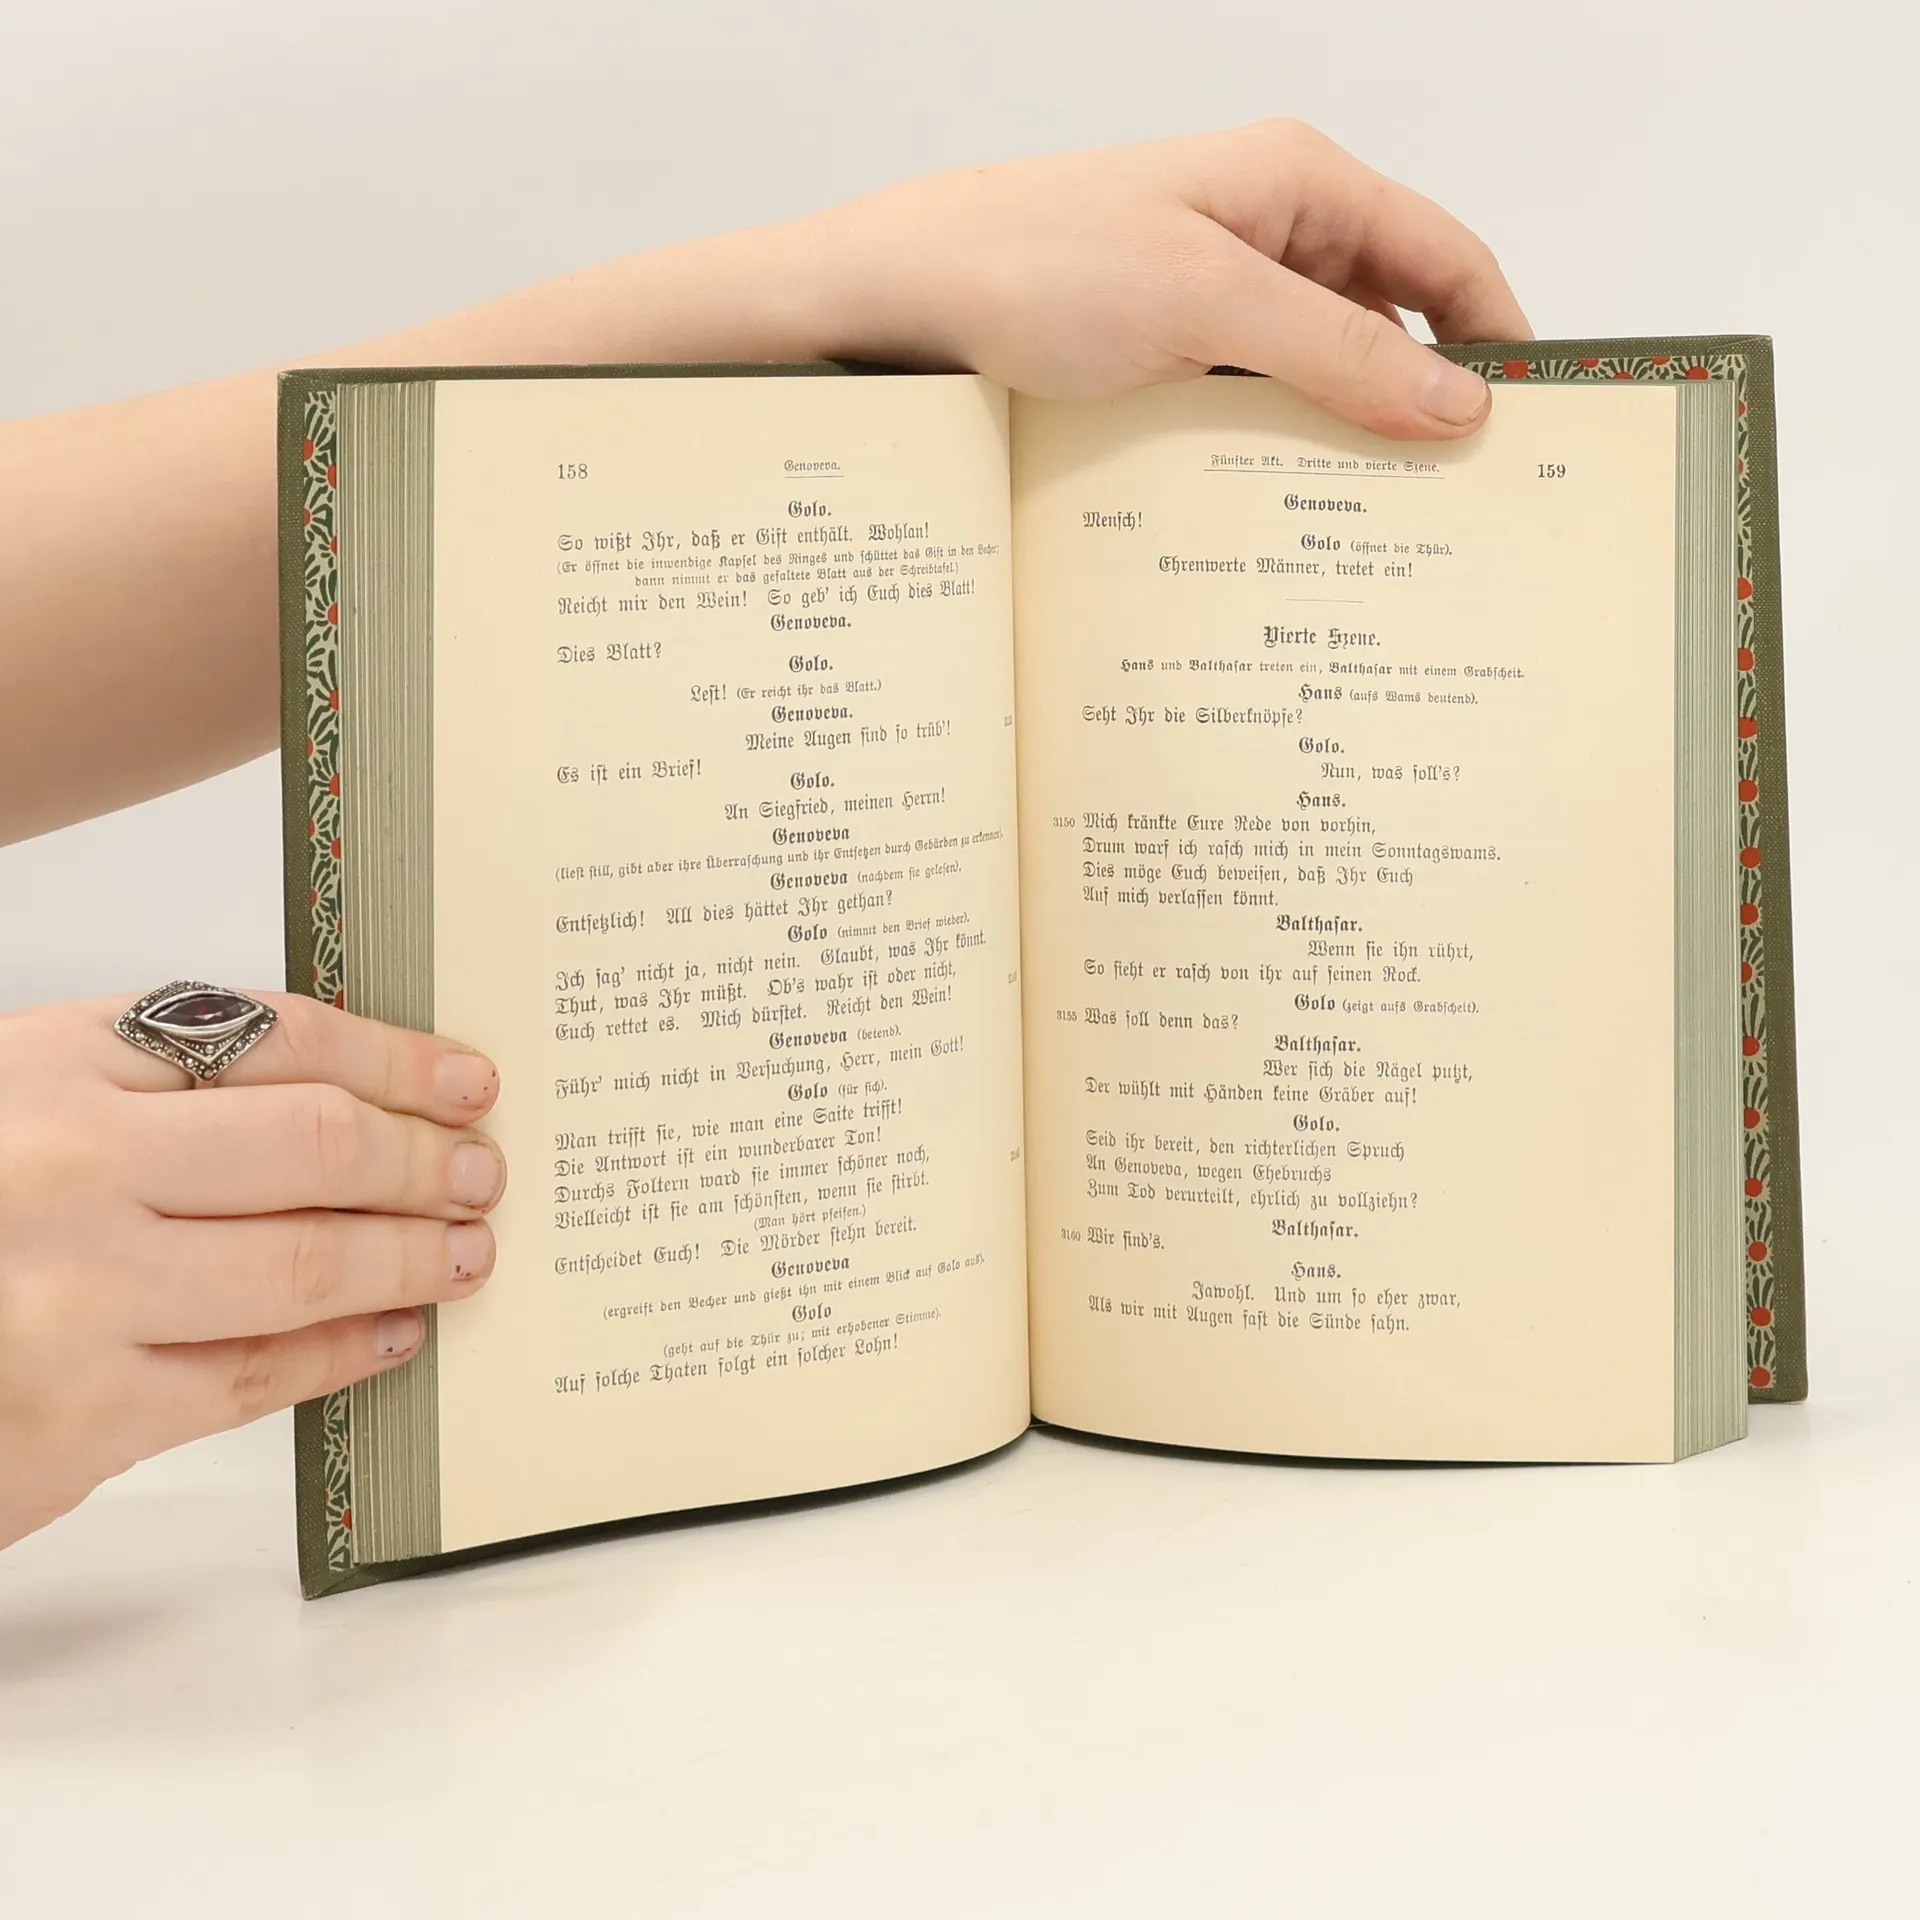 158
Genoveva.
Golo.
So wißt Ihr, daß er Gift enthält. Wohlan!
(Er öffnet die inwendige Kapsel des Ringes und schüttet das Gift in den Becher;
dann nimmt er das gefaltete Blatt aus der Schreibtafel.)
Reicht mir den Wein! So geb' ich Euch dies Blatt!
Genoveva.
Dies Blatt?
Golo.
Lest! (Er reicht ihr das Blatt.)
Genoveva.
Meine Augen sind so trüb'!
Es ist ein Brief!
Golo.
An Siegfried, meinen Herrn!
Genoveva
(liest still, gibt aber ihre Überraschung und ihr Entsetzen durch Gebärden zu erkennen).
Genoveva (nachdem sie gelesen).
Entsetzlich! All dies hättet Ihr gethan?
Golo (nimmt den Brief wieder).
Ich sag' nicht ja, nicht nein. Glaubt, was Ihr könnt.
Thut, was Ihr müßt. Ob's wahr ist oder nicht,
Euch rettet es. Mich dürstet. Reicht den Wein!
Genoveva (betend).
Führ' mich nicht in Versuchung, Herr, mein Gott!
Golo (für sich).
Man trifft sie, wie man eine Saite trifft!
Die Antwort ist ein wunderbarer Ton!
Durchs Foltern ward sie immer schöner noch,
Vielleicht ist sie am schönsten, wenn sie stirbt.
(Man hört pfeifen.)
Entscheidet Euch! Die Mörder stehn bereit.
Genoveva
(ergreift den Becher und gießt ihn mit einem Blick auf Golo aus).
Golo
(geht auf die Thür zu; mit erhobener Stimme).
Auf solche Thaten folgt ein solcher Lohn!
Fünfter Akt. Dritte und vierte Szene.
159
Genoveva.
Mensch!
Golo (öffnet die Thür).
Ehrenwerte Männer, tretet ein!
Vierte Szene.
Hans und Balthasar treten ein, Balthasar mit einem Grabscheit.
Hans (aufs Wams deutend).
Seht Ihr die Silberknöpfe?
Golo.
Nun, was soll's?
Hans.
3150 Mich kränkte Eure Rede von vorhin,
Drum warf ich rasch mich in mein Sonntagswams.
Dies möge Euch beweisen, daß Ihr Euch
Auf mich verlassen könnt.
Balthasar.
Wenn sie ihn rührt,
So sieht er rasch von ihr auf seinen Rock.
Golo (zeigt aufs Grabscheit).
3155 Was soll denn das?
Balthasar.
Wer sich die Nägel putzt,
Der wühlt mit Händen keine Gräber auf!
Golo.
Seid ihr bereit, den richterlichen Spruch
An Genoveva, wegen Ehebruchs
Zum Tod verurteilt, ehrlich zu vollziehn?
Balthasar.
3160 Wir sind's.
Hans.
Jawohl. Und um so eher zwar,
Als wir mit Augen fast die Sünde sahn.